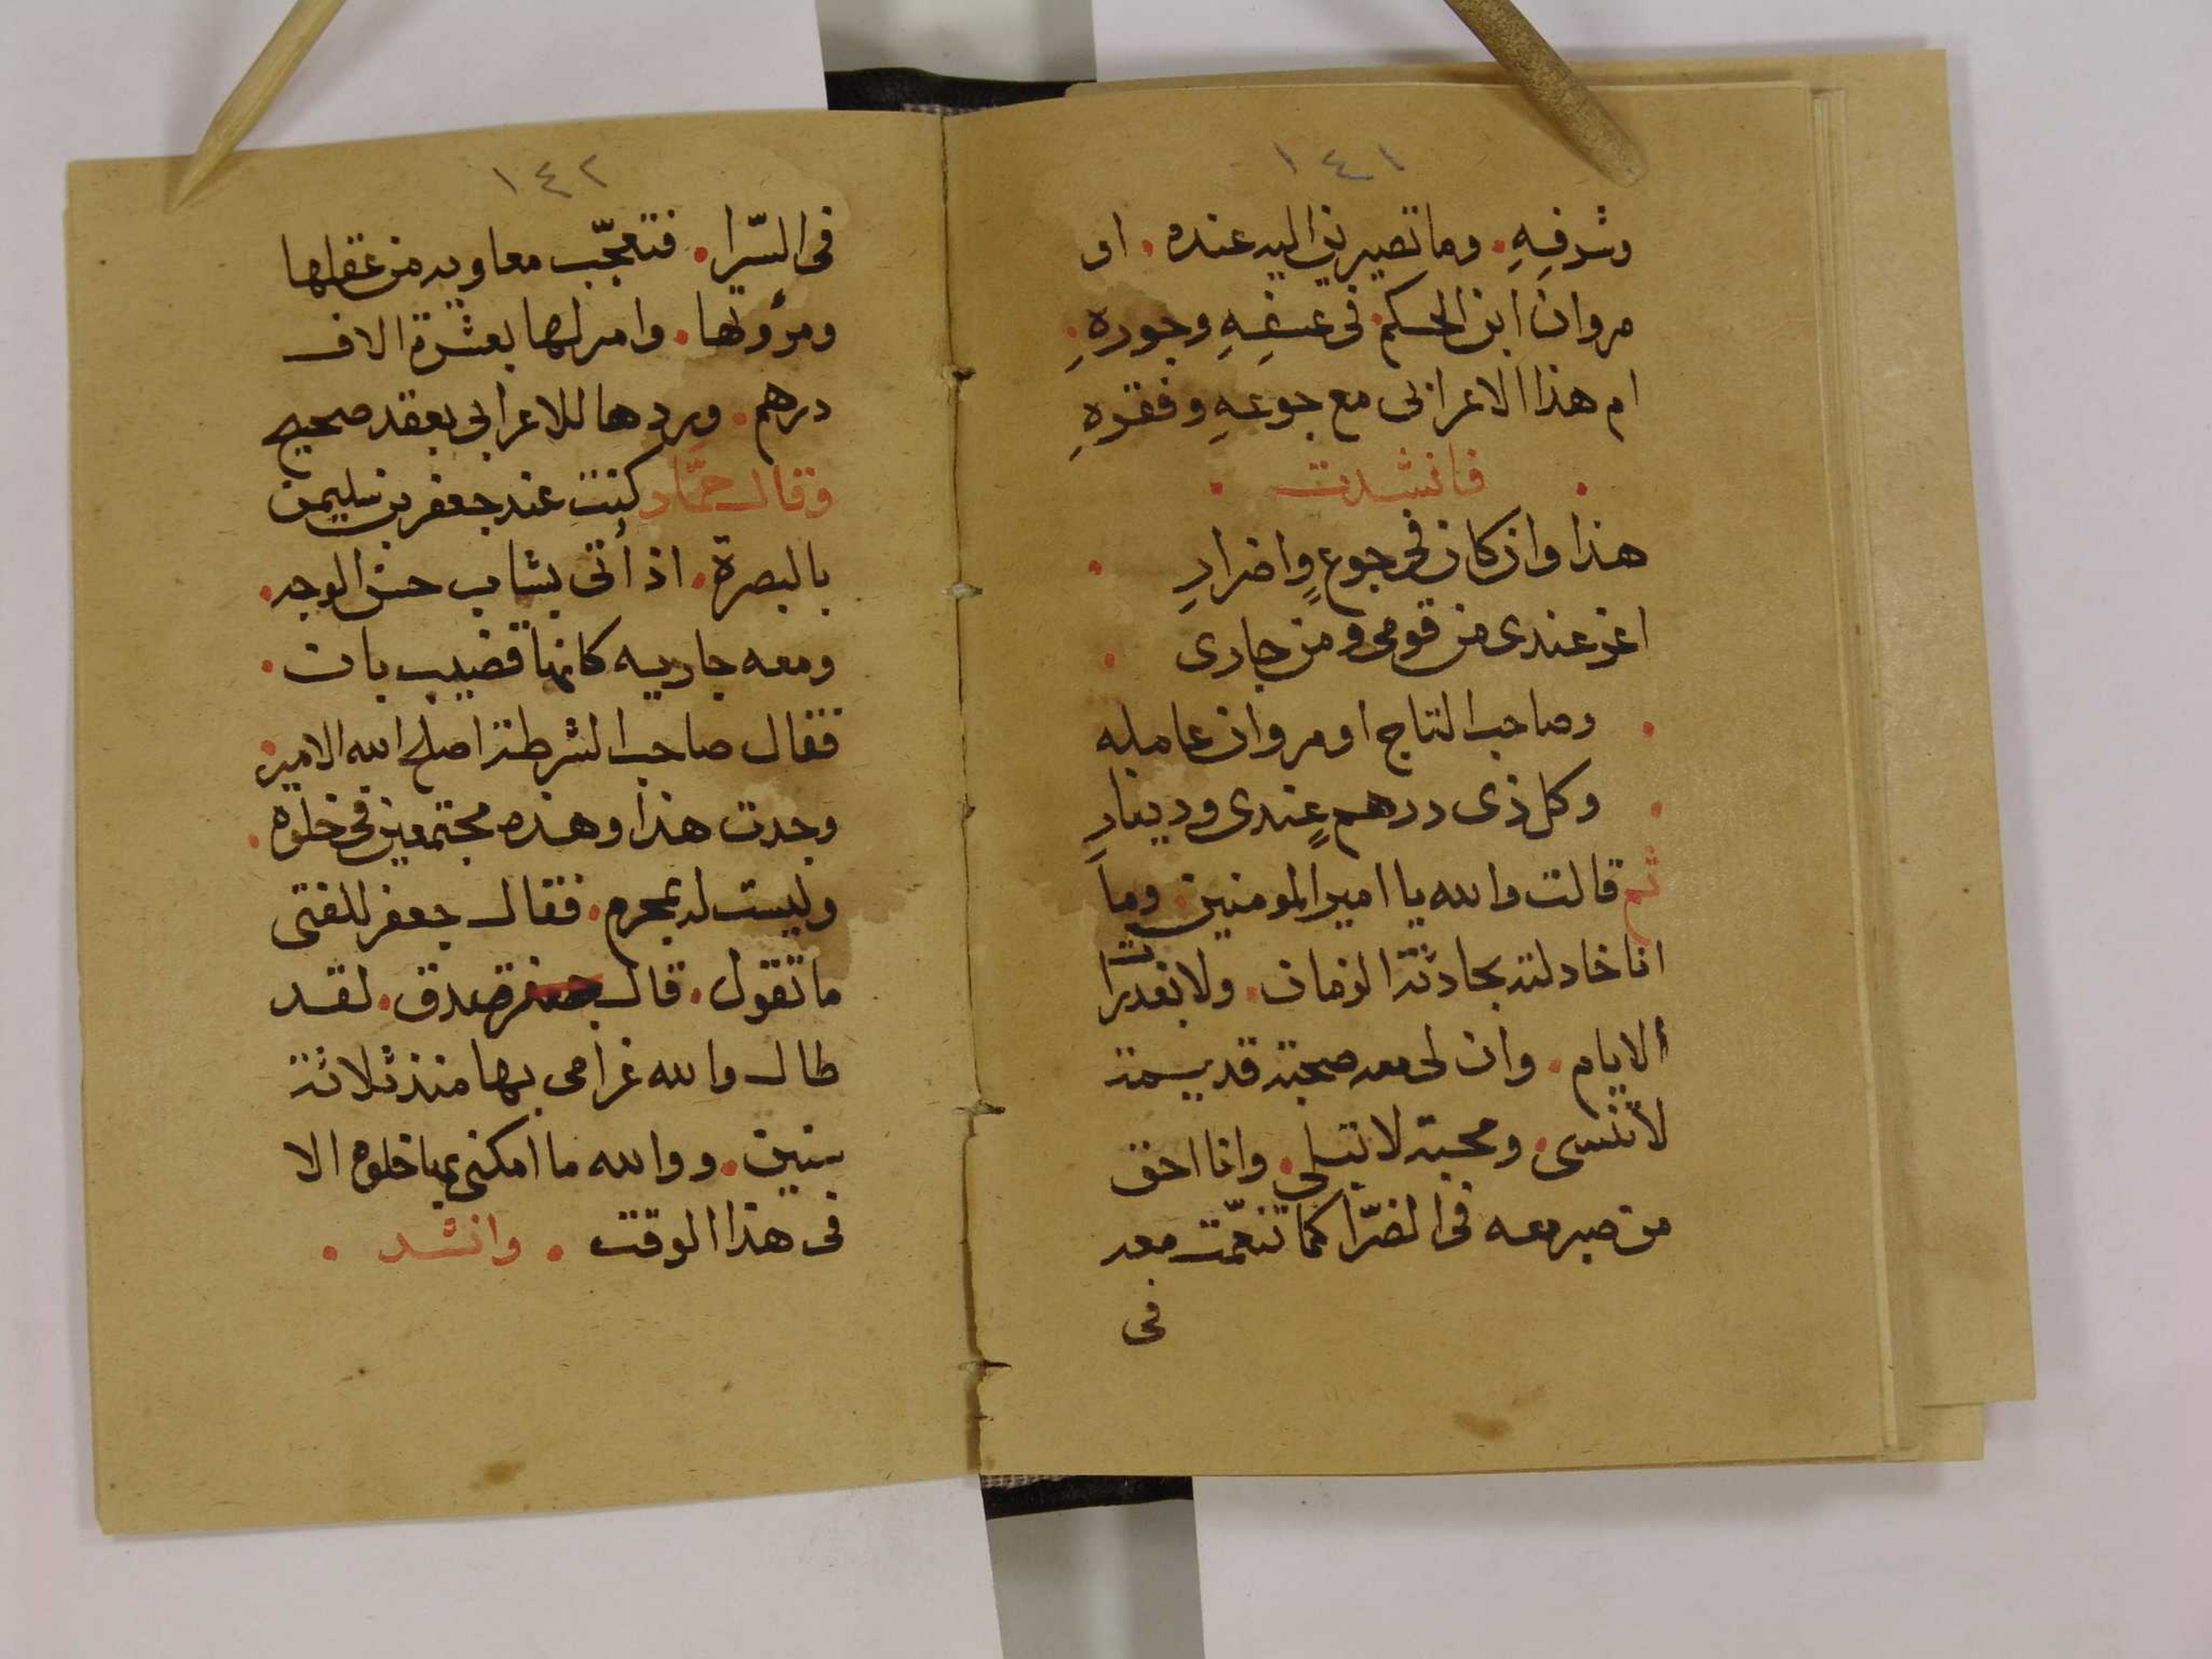 ١٤١
وشرفِهِ . وما تصيرين اليه عنده . او
مروان ابن الحكم . فى عسفِهِ وجورهِ .
ام هذا الاعرابى مع جوعهِ وفقرهِ
. فانشدت .
هذا وان كان فى جوعٍ واضرارِ .
اعز عندى من قومى ومن جارى .
. وصاحب التاج او مروان عامله
. وكل ذى درهمٍ عندى ودينارِ
ثم قالت والله يا امير المومنين . وما
انا خادلته بحادثة الزمان . ولا بغدرات
الايام . وان لى معه صحبة قديمة
لا تنسى . ومحبة لا تبلى . وانا احق
من صبر معه فى الضرّا كما تنعّمت معه
فى
١٤٢
فى السّرا . فتعجّب معاويه من عقلها
ومرؤتها . وامر لها بعشرة الاف
درهم . وردها للاعرابى بعقد صحيح
وقال حمّاد كنت عند جعفر بن سليمن
بالبصرة . اذ أتى بشاب حسن الوجه .
ومعه جاريه كانها قضيب بان .
فقال صاحب الشرطة اصلح الله الامير .
وجدت هذا وهذه مجتمعين فى خلوه .
وليست له بمحرم . فقال جعفر للفتى
ما تقول . قال جعفر صدق . لقد
طال والله غرامى بها منذ ثلاثة
سنين . ووالله ما امكنى بها خلوه الا
فى هذا الوقت . وانشد .